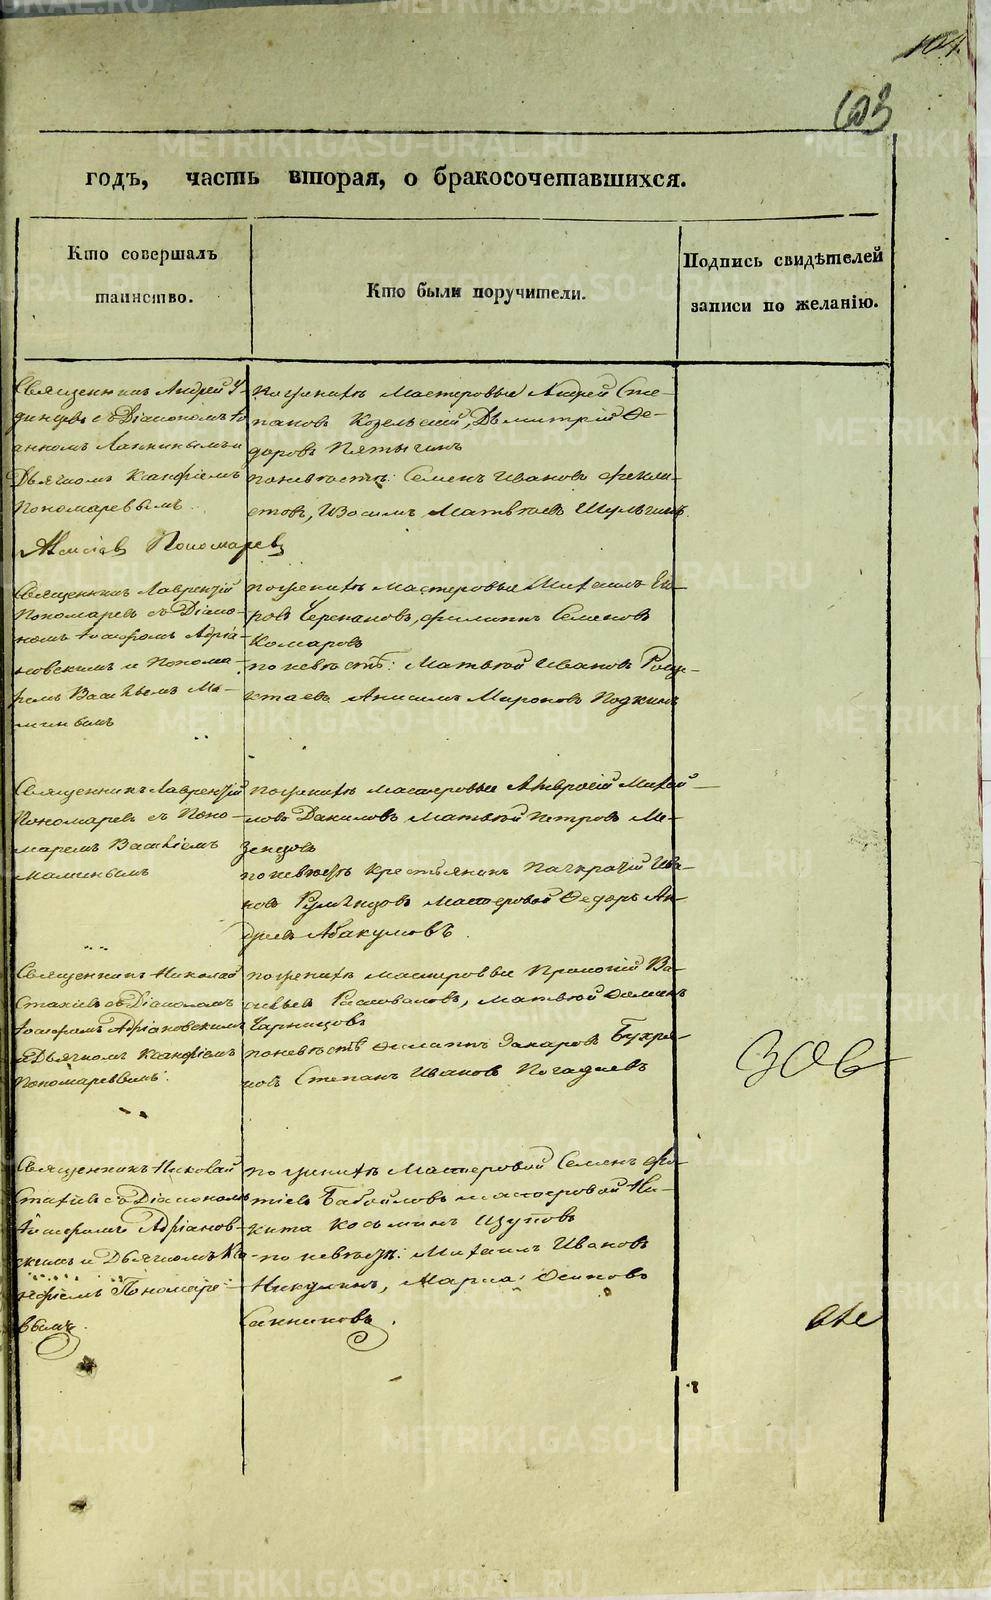 104.
103
годъ, часть вторая, о бракосочетавшихся.
Кто совершалъ
таинство.
Кто были поручители.
Подпись свидѣтелей
записи по желанію.
Священникъ Андрей У-
динцевъ съ Діакономъ Іо
анномъ и
Дьячкомъ Ксанфіемъ
Пономаревымъ
Алексій Пономаревъ
по женихѣ Мастеровые Андрей Сте-
пановъ Козельскій, Дмитрій Ѳе-
доровъ Пятыгинъ
по невѣстѣ: Семенъ Ивановъ Фекли-
стовъ, Изосимъ Матвѣевъ Шульгинъ.
Священникъ Лаврентій
Пономаревъ съ Діако-
номъ Іосифомъ Адріа-
новскимъ и Понома-
ремъ Васильемъ Ма-
минымъ
по женихѣ мастеровые Михаилъ Его-
ровъ Черепановъ, Филиппъ Семеновъ
Комаровъ
по невѣстѣ: Матвѣй Ивановъ
Анисимъ Мироновъ Подкинъ
Священникъ Лаврентій
Пономаревъ съ Поно-
маремъ Васильемъ
Маминымъ
по женихѣ мастеровые Амвросій Михай-
ловъ Даниловъ Матвѣй Петровъ Ме-
зенцовъ
по невѣстѣ крестьянинъ Панкратій Ива-
новъ Румянцовъ мастеровой Ѳедоръ Ан-
древъ Абакумовъ.
Священникъ Николай
Стахіевъ съ Діакономъ
Іосифомъ Адріановскимъ
и Дьячкомъ Ксанфіемъ
Пономаревымъ.
по женихѣ мастеровые Прокопій Ва-
сильевъ Матвѣй
по невѣстѣ Филиппъ Захаровъ Бухря-
ковъ Степанъ Ивановъ Погадаевъ
Зов
Священникъ Николай
Стахіевъ съ Діакономъ
Іосифомъ Адріанов-
скимъ и Дьячкомъ Кса-
нфіемъ Пономаре-
вымъ.
по женихѣ Мастеровой Семенъ Фо-
тіевъ Бабайловъ мастеровой Ни-
кита Косьминъ Изуповъ
по невѣстѣ: Михаилъ Ивановъ
Никулинъ, Марка Осиповъ
Санниковъ.
METRIKI.GASO-URAL.RU